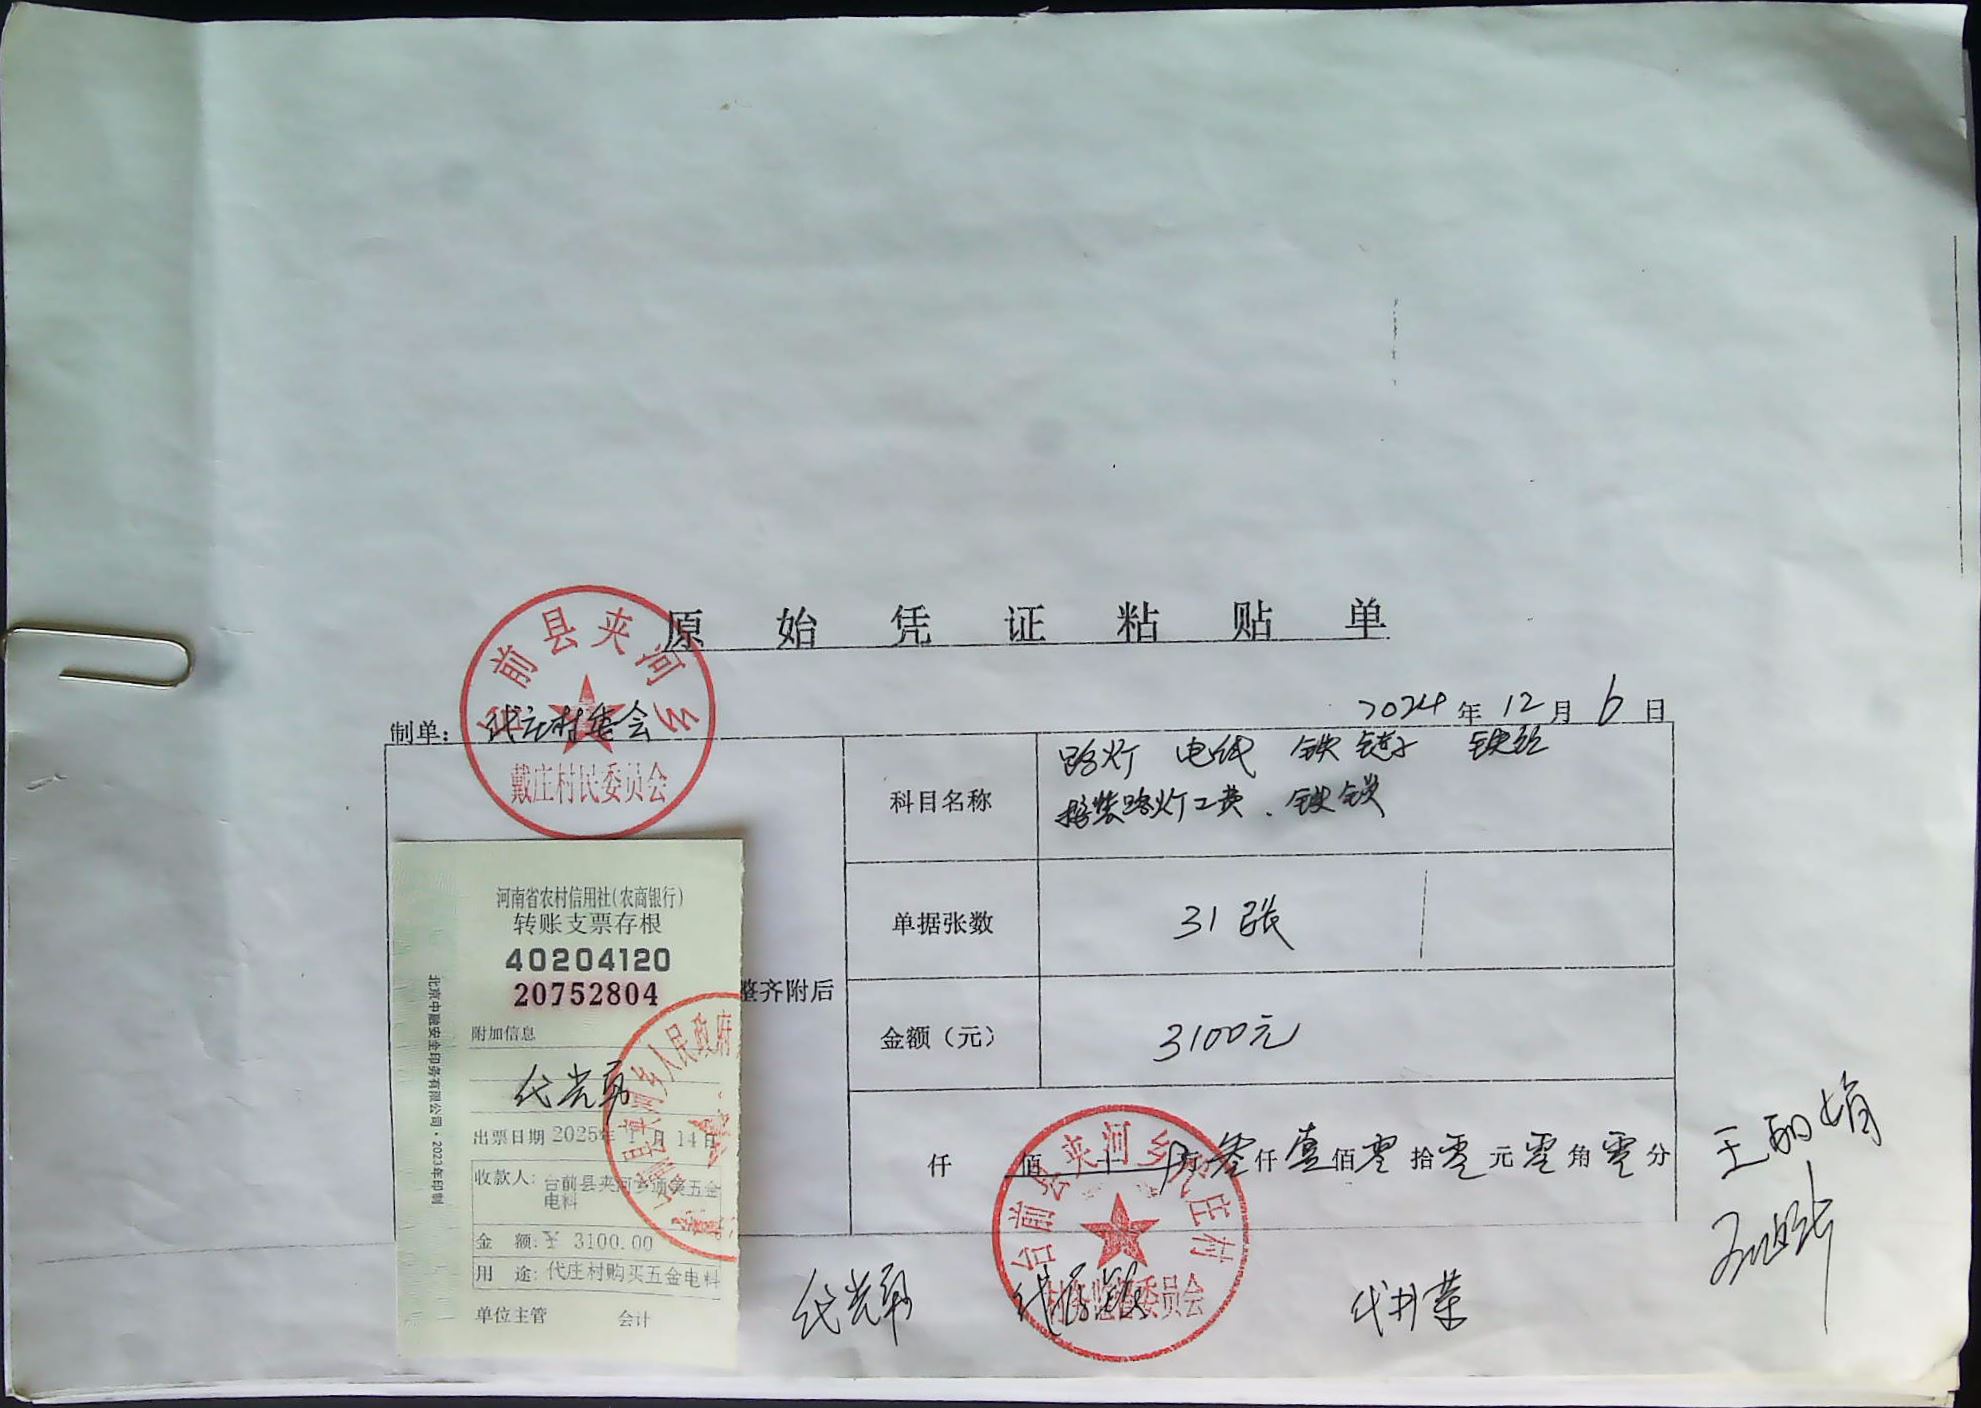 原始凭证粘贴单
制单：代庄村委会
2024年12月6日
台前县夹河乡
戴庄村民委员会
科目名称
路灯 电线 铁链子 铁丝
按装路灯工费．铁锁
单据张数
31张
整齐附后
金额（元）
3100元
仟 佰 十 万 叁仟壹佰零拾零元零角零分
河南省农村信用社(农商银行)
转账支票存根
40204120
20752804
附加信息
代光勇
出票日期 2025年 1月 14日
收款人: 台前县夹河乡 五金
电料
金 额: ¥ 3100.00
用 途: 代庄村购买五金电料
单位主管 会计
北京中融安全印务有限公司·2023年印制
台前县夹河乡人民政府
台前县夹河乡代庄村
村务监督委员会
代光勇
代井荣
王丽娟